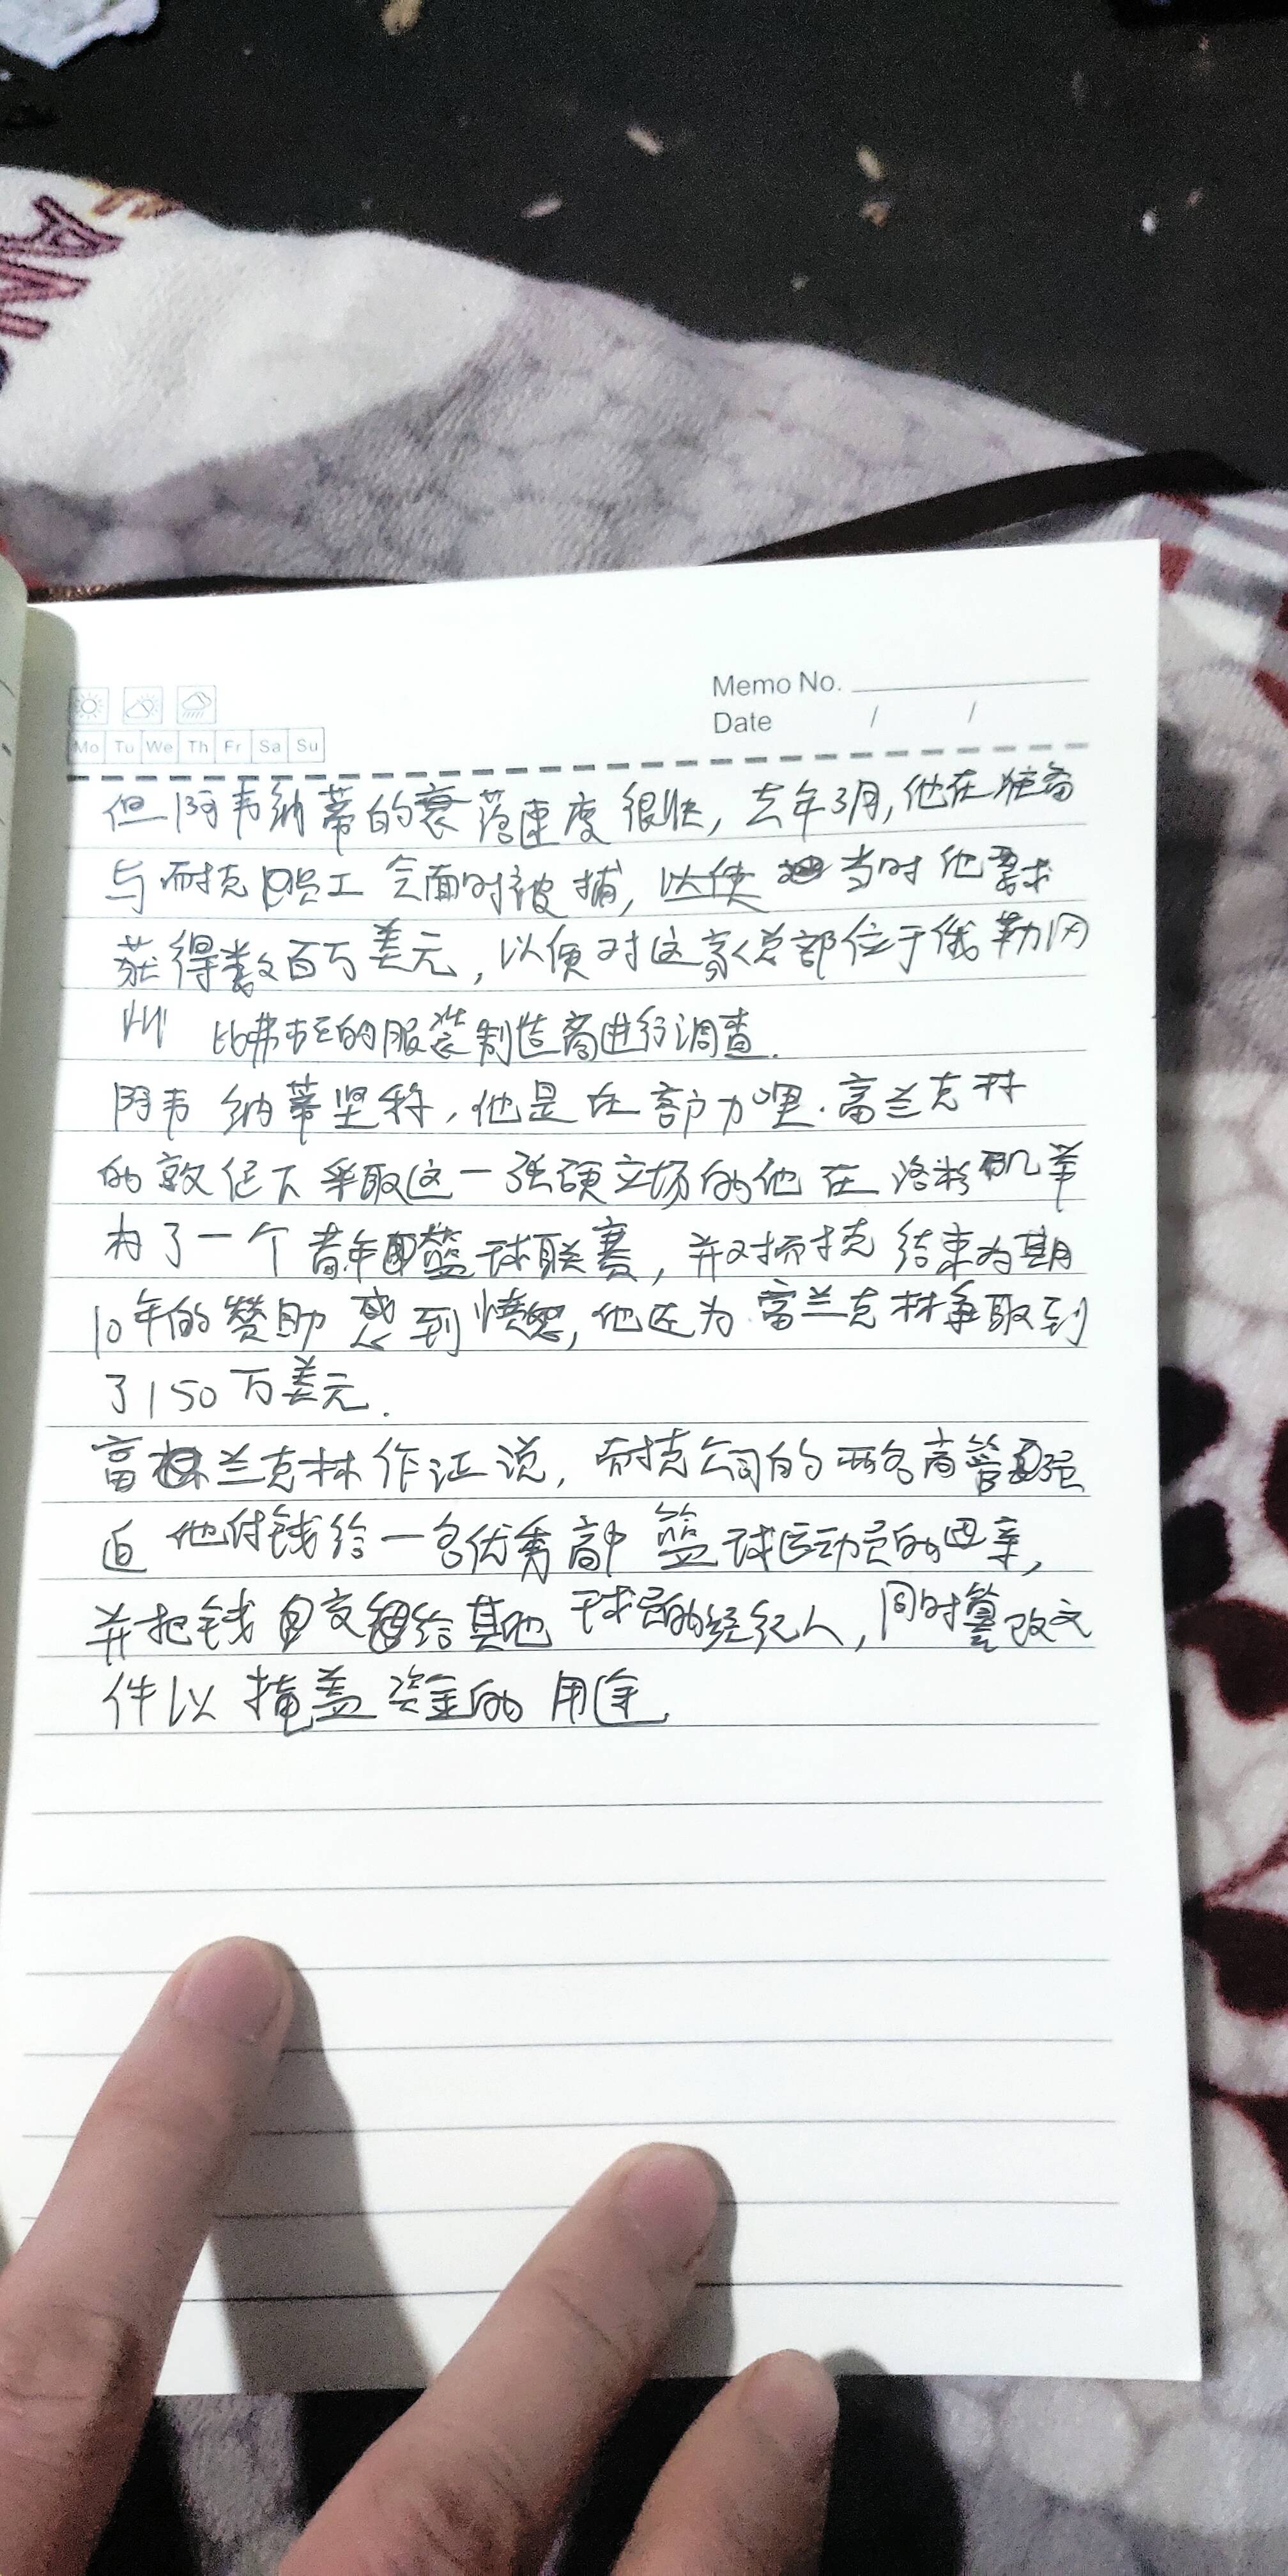 Memo No.
Date / /
Mo Tu We Th Fr Sa Su
但阿韦纳蒂的衰落速度很快,去年3月,他在准备
与耐克员工会面时被捕,以使当时他要求
获得数百万美元,以便对这家总部位于俄勒冈
州比弗顿的服装制造商进行调查.
阿韦纳蒂坚称,他是在加里.富兰克林
的敦促下采取这一强硬立场的他在洛杉矶举
办了一个青年篮球联赛,并对耐克结束为期
10年的赞助感到愤怒,他还为富兰克林争取到
了150万美元.
富兰克林作证说,耐克公司的两名高管强
迫他付钱给一名优秀高中篮球运动员的母亲,
并把钱交给其他球员的经纪人,同时篡改文
件以掩盖资金的用途